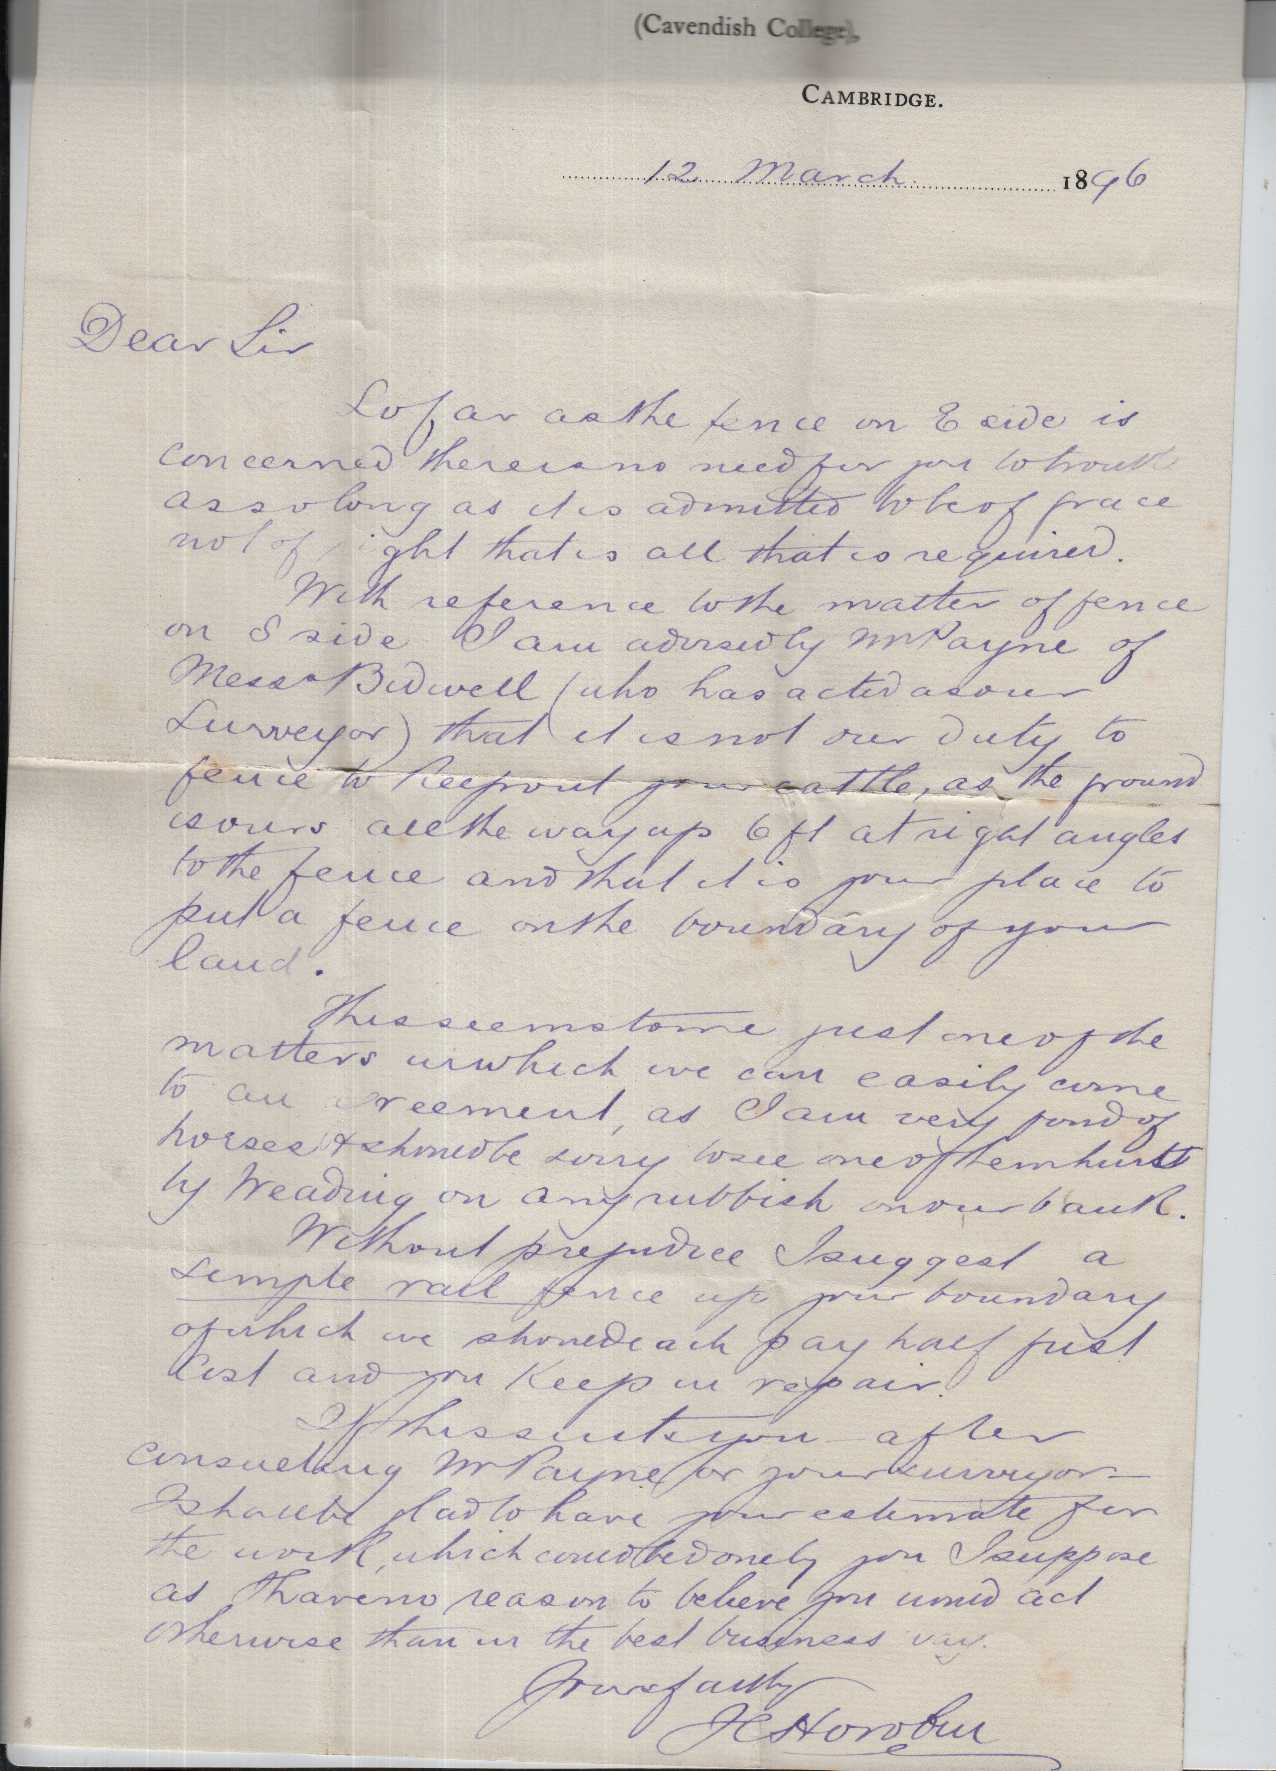 (Cavendish College),
CAMBRIDGE.
12 March 1896
Dear Sir
So far as the fence on E side is
concerned there is no need for you to trouble
as so long as it is admitted to be of grace
not of right that is all that is required.
With reference to the matter of fence
on S side I am advised by Mr Payne of
Messrs Bidwell (who has acted as our
Surveyor) that it is not our duty to
fence to keep out your cattle, as the ground
is ours all the way up 6 ft at right angles
to the fence and that it is your place to
put a fence on the boundary of your
land.
This seems to me just one of the
matters in which we can easily come
to an agreement, as I am very fond of
horses & should be sorry to see one of them hurt
by treading on any rubbish on our bank.
Without prejudice I suggest a
simple rail fence up your boundary
of which we should each pay half first
Cost and you Keep in repair.
If this suits you after
consulting Mr Payne or your surveyor
I shall be glad to have your estimate for
the work, which could be done by you I suppose
as I have no reason to believe you would act
otherwise than in the best business way.
Yours faithly
J C Horobin